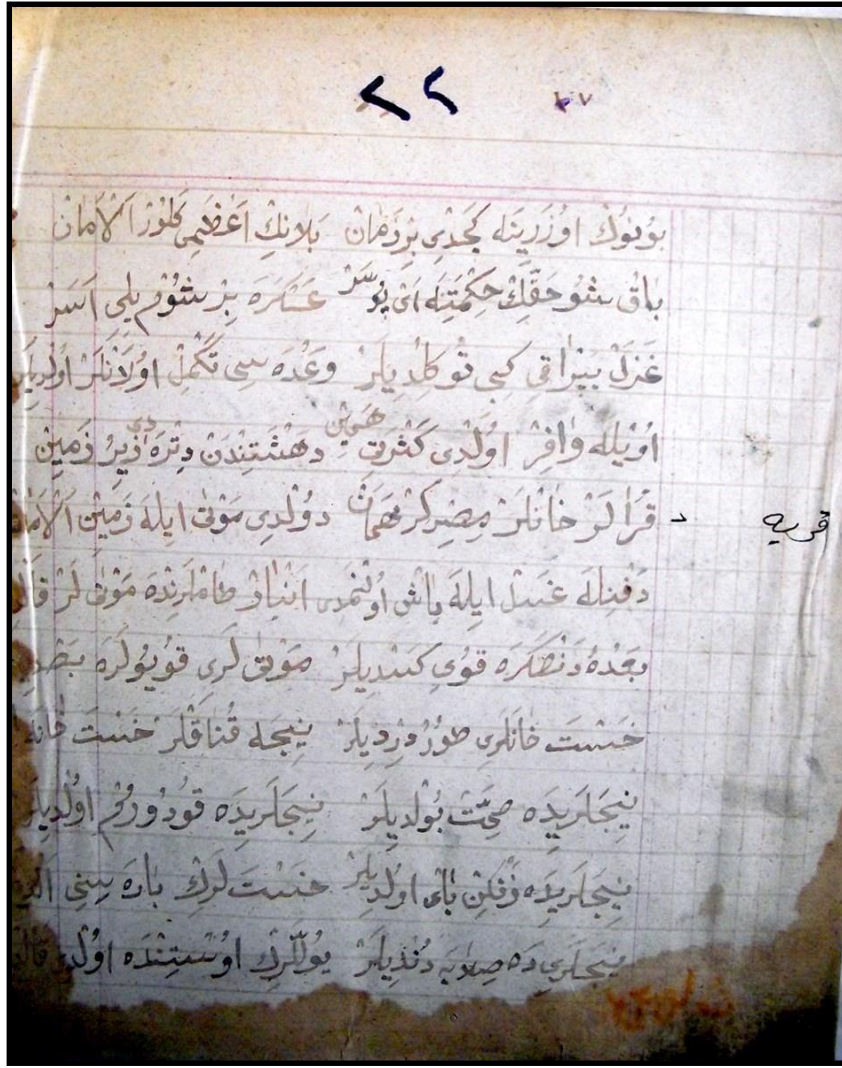 ٢٢ ٢٧
بونوڭ اوزرينه كچدى بر زمان بلانڭ اعظمى كلور الامان
باق شو حقڭ حكمتنه اى پوسر عسكره بر شوم يلى اسر
غزل يپراقى كبى توكلديلر وعده سى تكمل اولانلر اولديلر
اويله وافر اولدى كثرتى همين دهشتندن دتره دى زير زمين
قرالر خانلر دولدى موتى ايله زمين الامان
قريه
دفنله غسل ايله باش اولنمدى انبار طاملرنده موتى لر
بعده دنكره قوى كسديلر موتى لرى قويولره
خست خانلرى طوردرديلر نيجه قناقلر خست خانه
نيجلريده صحت بولديلر نيجلريده قودورم اولديلر
نيجلريده باى اولديلر خست لرڭ باره سنى
نيجلرى ده دنديلر يوللرڭ اوستنده اولدى